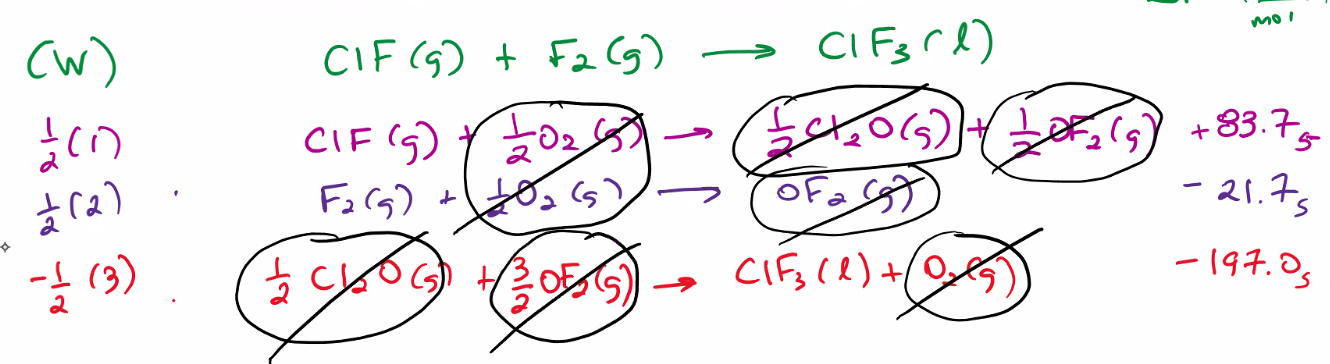 mol
(W) ClF (g) + F₂ (g) → ClF₃ (l)
½ (1) ClF (g) + ½ O₂ (g) → ½ Cl₂O (g) + ½ OF₂ (g) +83.7₅
½ (2) F₂ (g) + ½ O₂ (g) → OF₂ (g) - 21.7₅
-½ (3) ½ Cl₂O (g) + 3/2 OF₂ (g) → ClF₃ (l) + O₂ (g) - 197.0₅